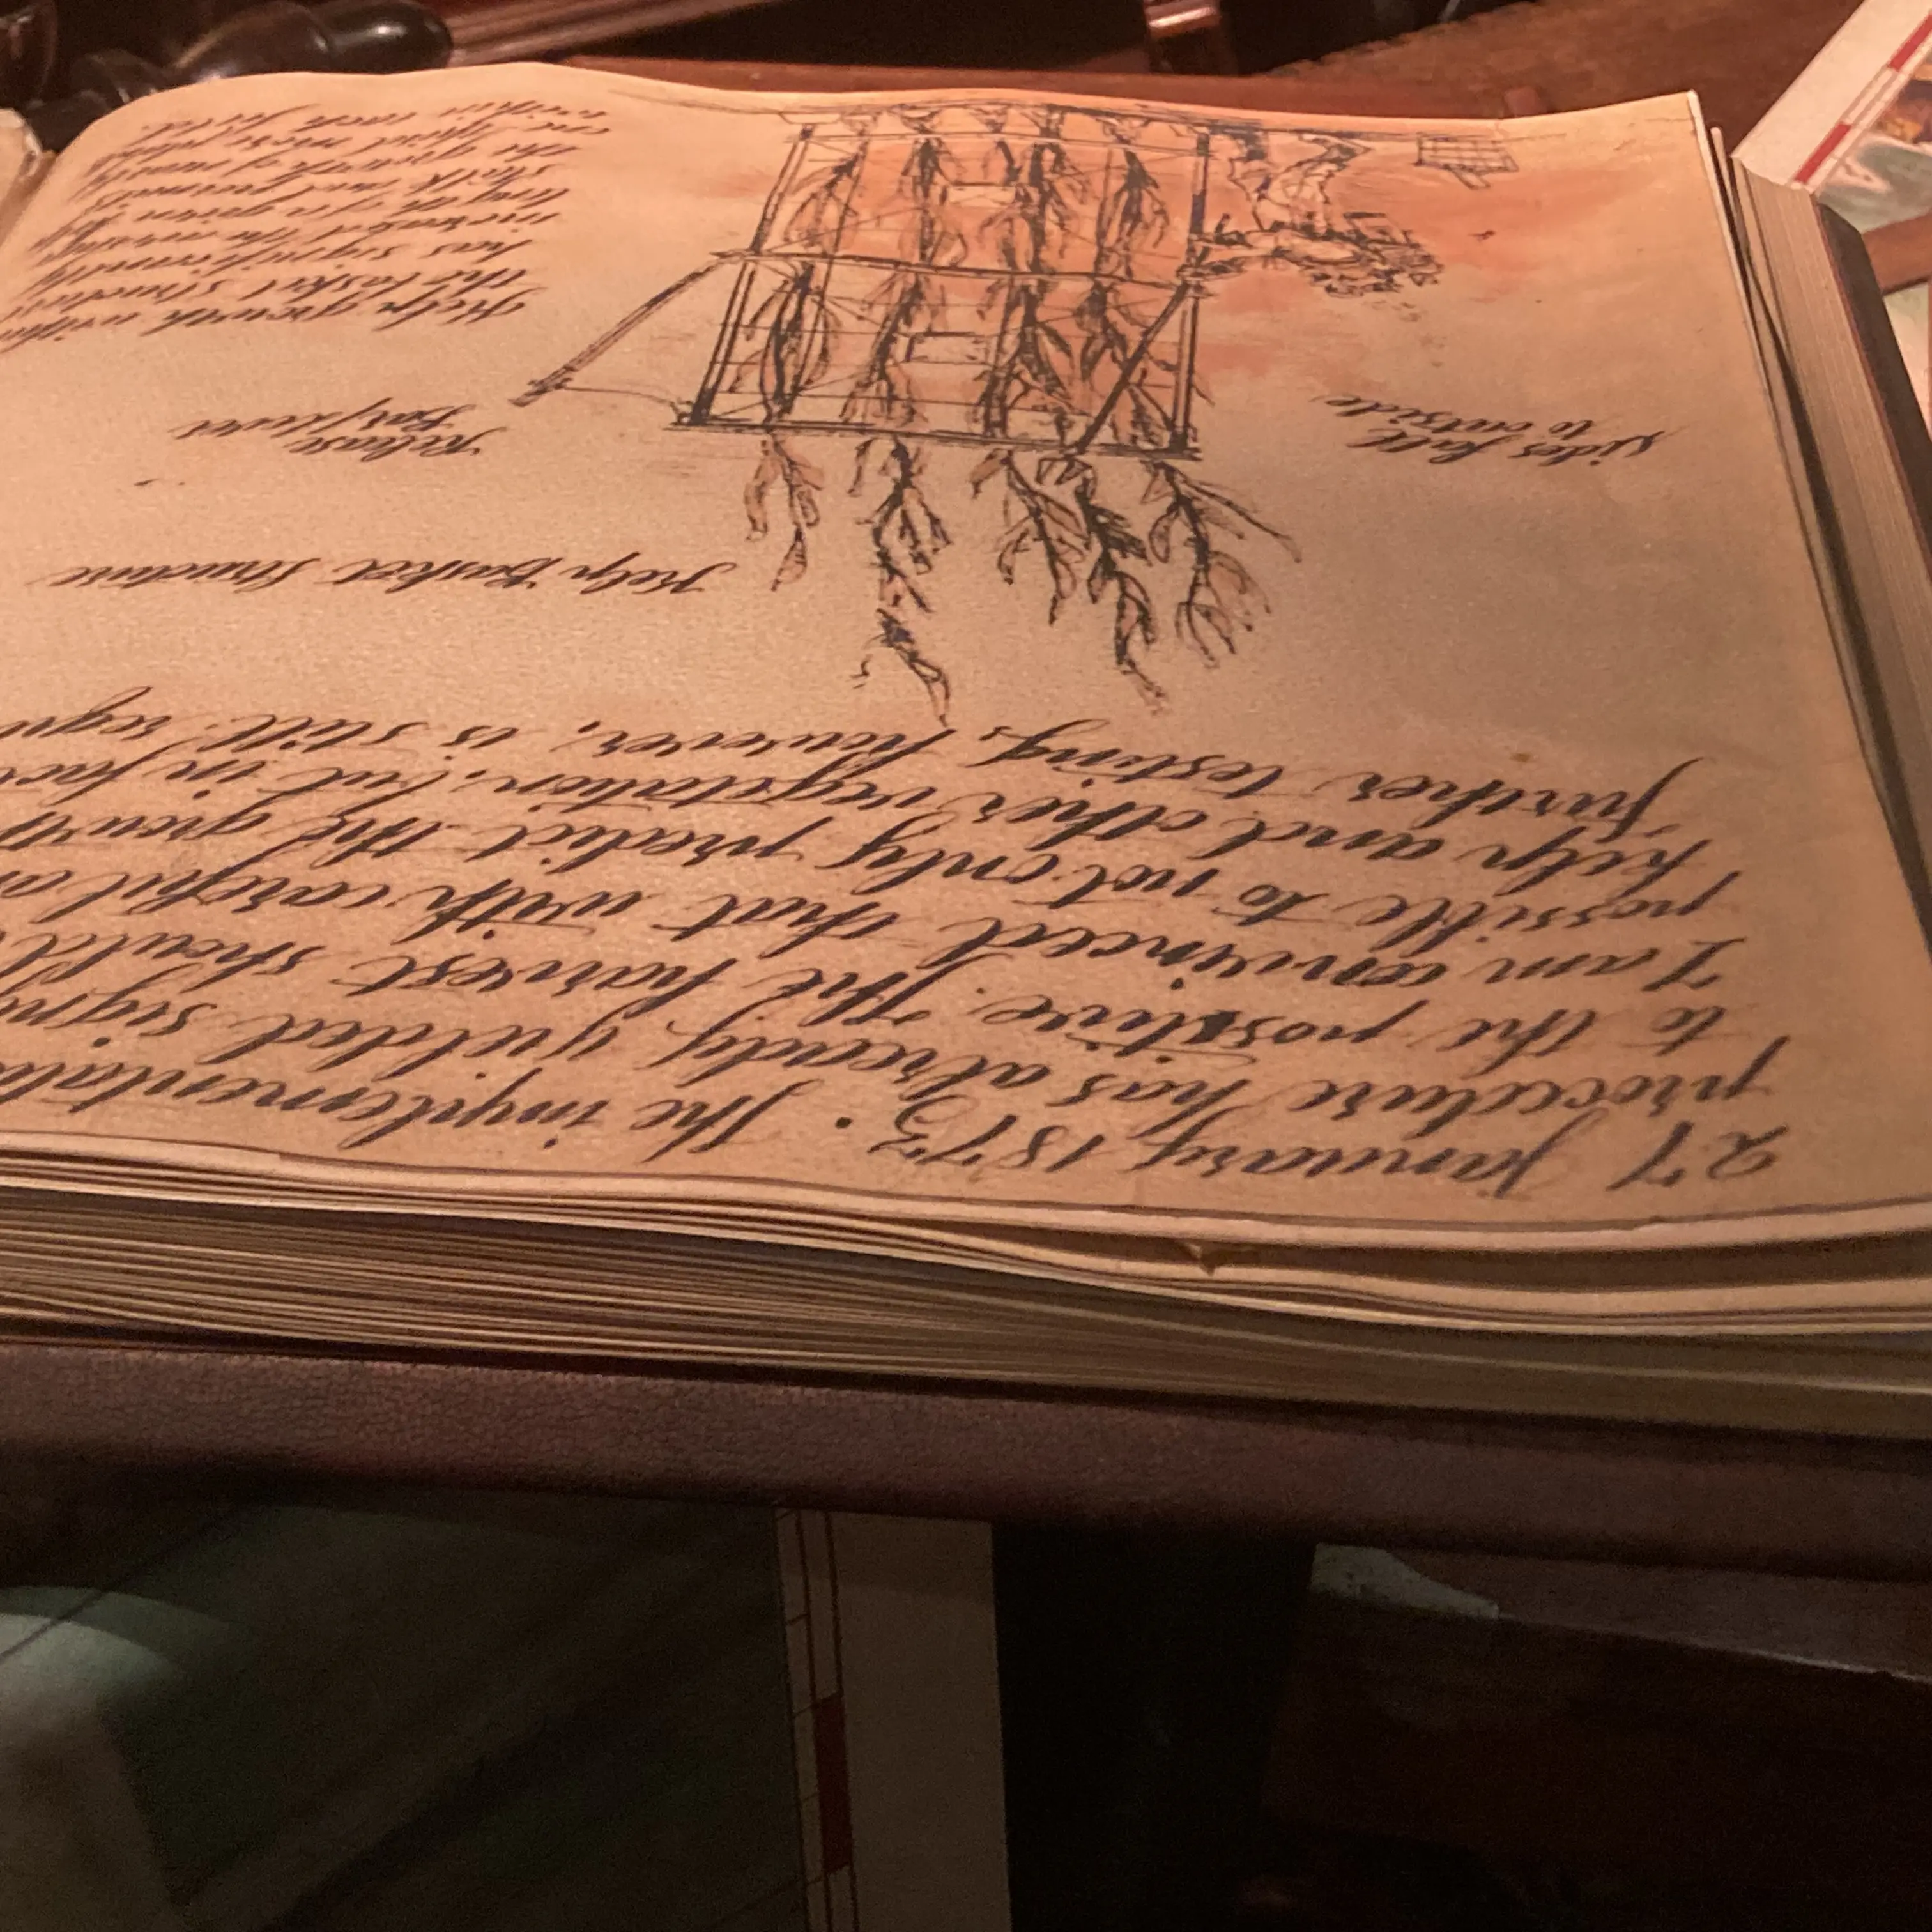 27 January 1873. The implementati
procedure has already yielded signi
to the positive. The harvest should
I am convinced that with careful
possible to not only predict the grow
kelp and other vegetation, but in fac
further testing, however, is still requ
Kelp Basket Structure
sides fall
to outside
Release
Bar/lever
Kelp growth within
the basket structure
has significantly
increased the
length of a given
stalk and
the growth of